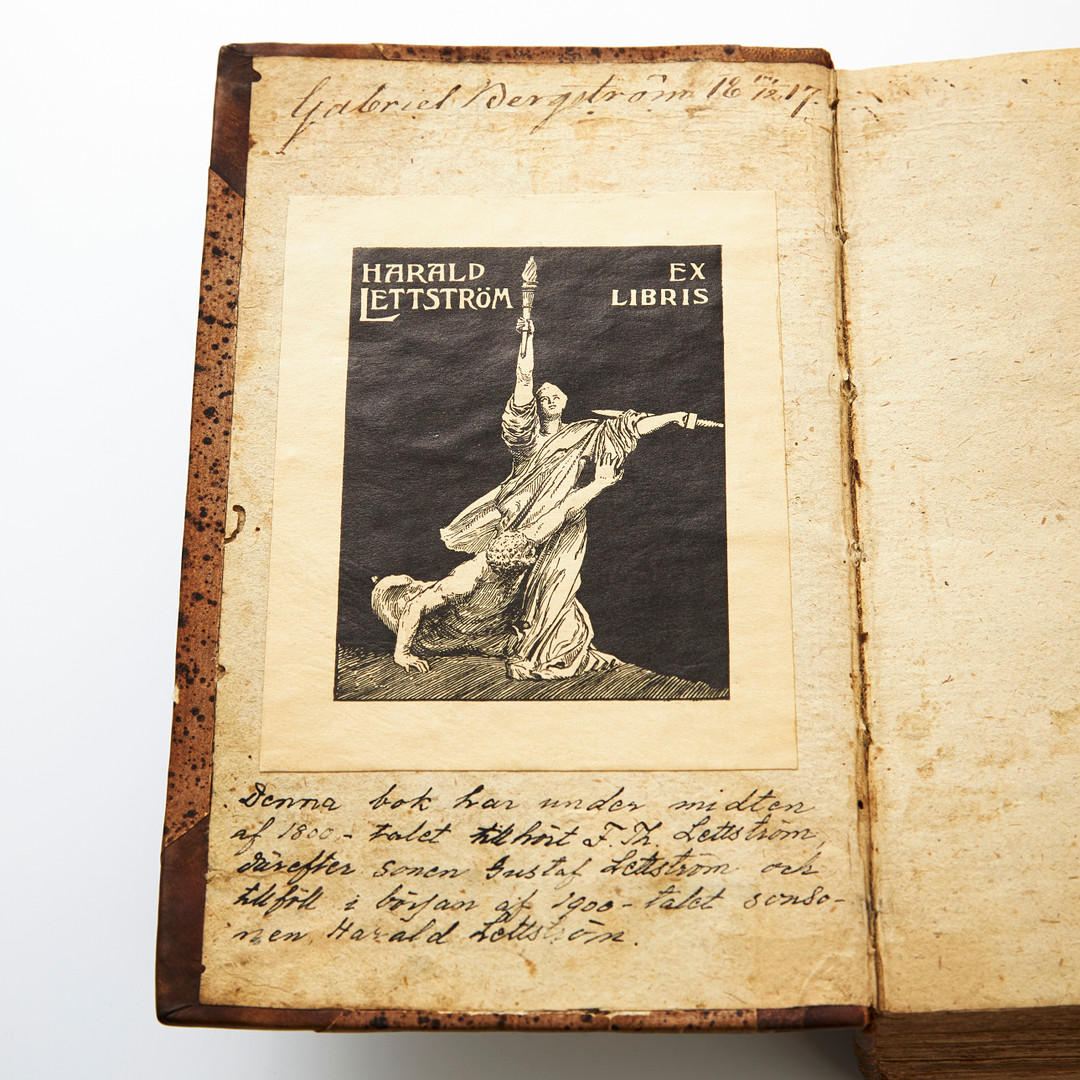 Gabriel Bergström 18 17.
HARALD
LETTSTRÖM
EX
LIBRIS
Denna bok har under midten
af 1800-talet tillhört F. Th. Lettström,
därefter sonen Gustaf Lettström och
tillföll i början af 1900-talet sonso-
nen, Harald Lettström.